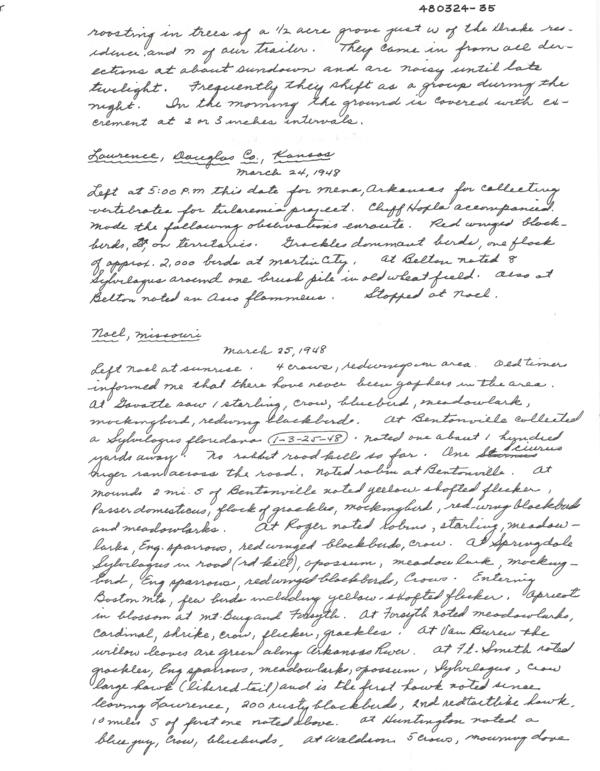 480324-35
roosting in trees of a 1/2 acre grove just W of the Drake res-
idence and N of our trailer. They come in from all dir-
ections at about sundown and are noisy until late
twilight. Frequently they shift as a group during the
night. In the morning the ground is covered with ex-
crement at 2 or 3 inches intervals.
Lawrence, Douglas Co., Kansas
March 24, 1948
Left at 5:00 P.M this date for Mena, Arkansas for collecting
vertebrates for tularemia project. Cliff Hopla accompanied.
Made the following observations enroute. Red winged black-
birds, on territories. Grackles dominant birds, one flock
of approx. 2,000 birds at Martin City. At Belton noted 8
Sylvilagus around one brush pile in old wheat field. Also at
Belton noted an Asio flammeus. Stopped at Noel.
Noel, Missouri
March 25, 1948
Left Noel at sunrise. 4 crows, redwings in area. Old timers
informed me that there have never been gophers in the area.
At Gavatte saw 1 starling, crow, bluebird, meadowlark,
mockingbird, redwing blackbirds. At Bentonville collected
a Sylvilagus floridana (1-3-25-48). Noted one about 1 hundred
yards away. No rabbit road kills so far. One Sciurus
niger ran across the road. Noted robin at Bentonville. At
mounds 2 mi. S of Bentonville noted yellow shafted flicker,
Passer domesticus, flock of grackles, mockingbird, red-wing blackbirds
and meadowlarks. At Roger noted robins, starling, meadow-
larks, Eng. sparrows, redwinged blackbirds, crow. At Springdale
Sylvilagus in road (rd kill), opossum, meadow lark, mocking-
bird, Eng sparrows, redwinged blackbirds, Crows. Entering
Boston Mts, few birds including yellow-shafted flicker. Apricot
in blossom at Mt. Burg and Forsyth. At Forsyth noted meadowlarks,
cardinal, shrike, crow, flicker, grackles. At Van Buren the
willow leaves are green along Arkansas River. At Ft. Smith noted
grackles, Eng sparrows, meadowlarks, opossum, Sylvilagus, crow
large hawk (like red tail) and is the first hawk noted since
leaving Lawrence, 200 rusty blackbirds, 2nd redtaillike hawk.
10 miles S of first one noted above. At Huntington noted a
blue jay, Crow, bluebirds. At Waldson 5 crows, mourning dove